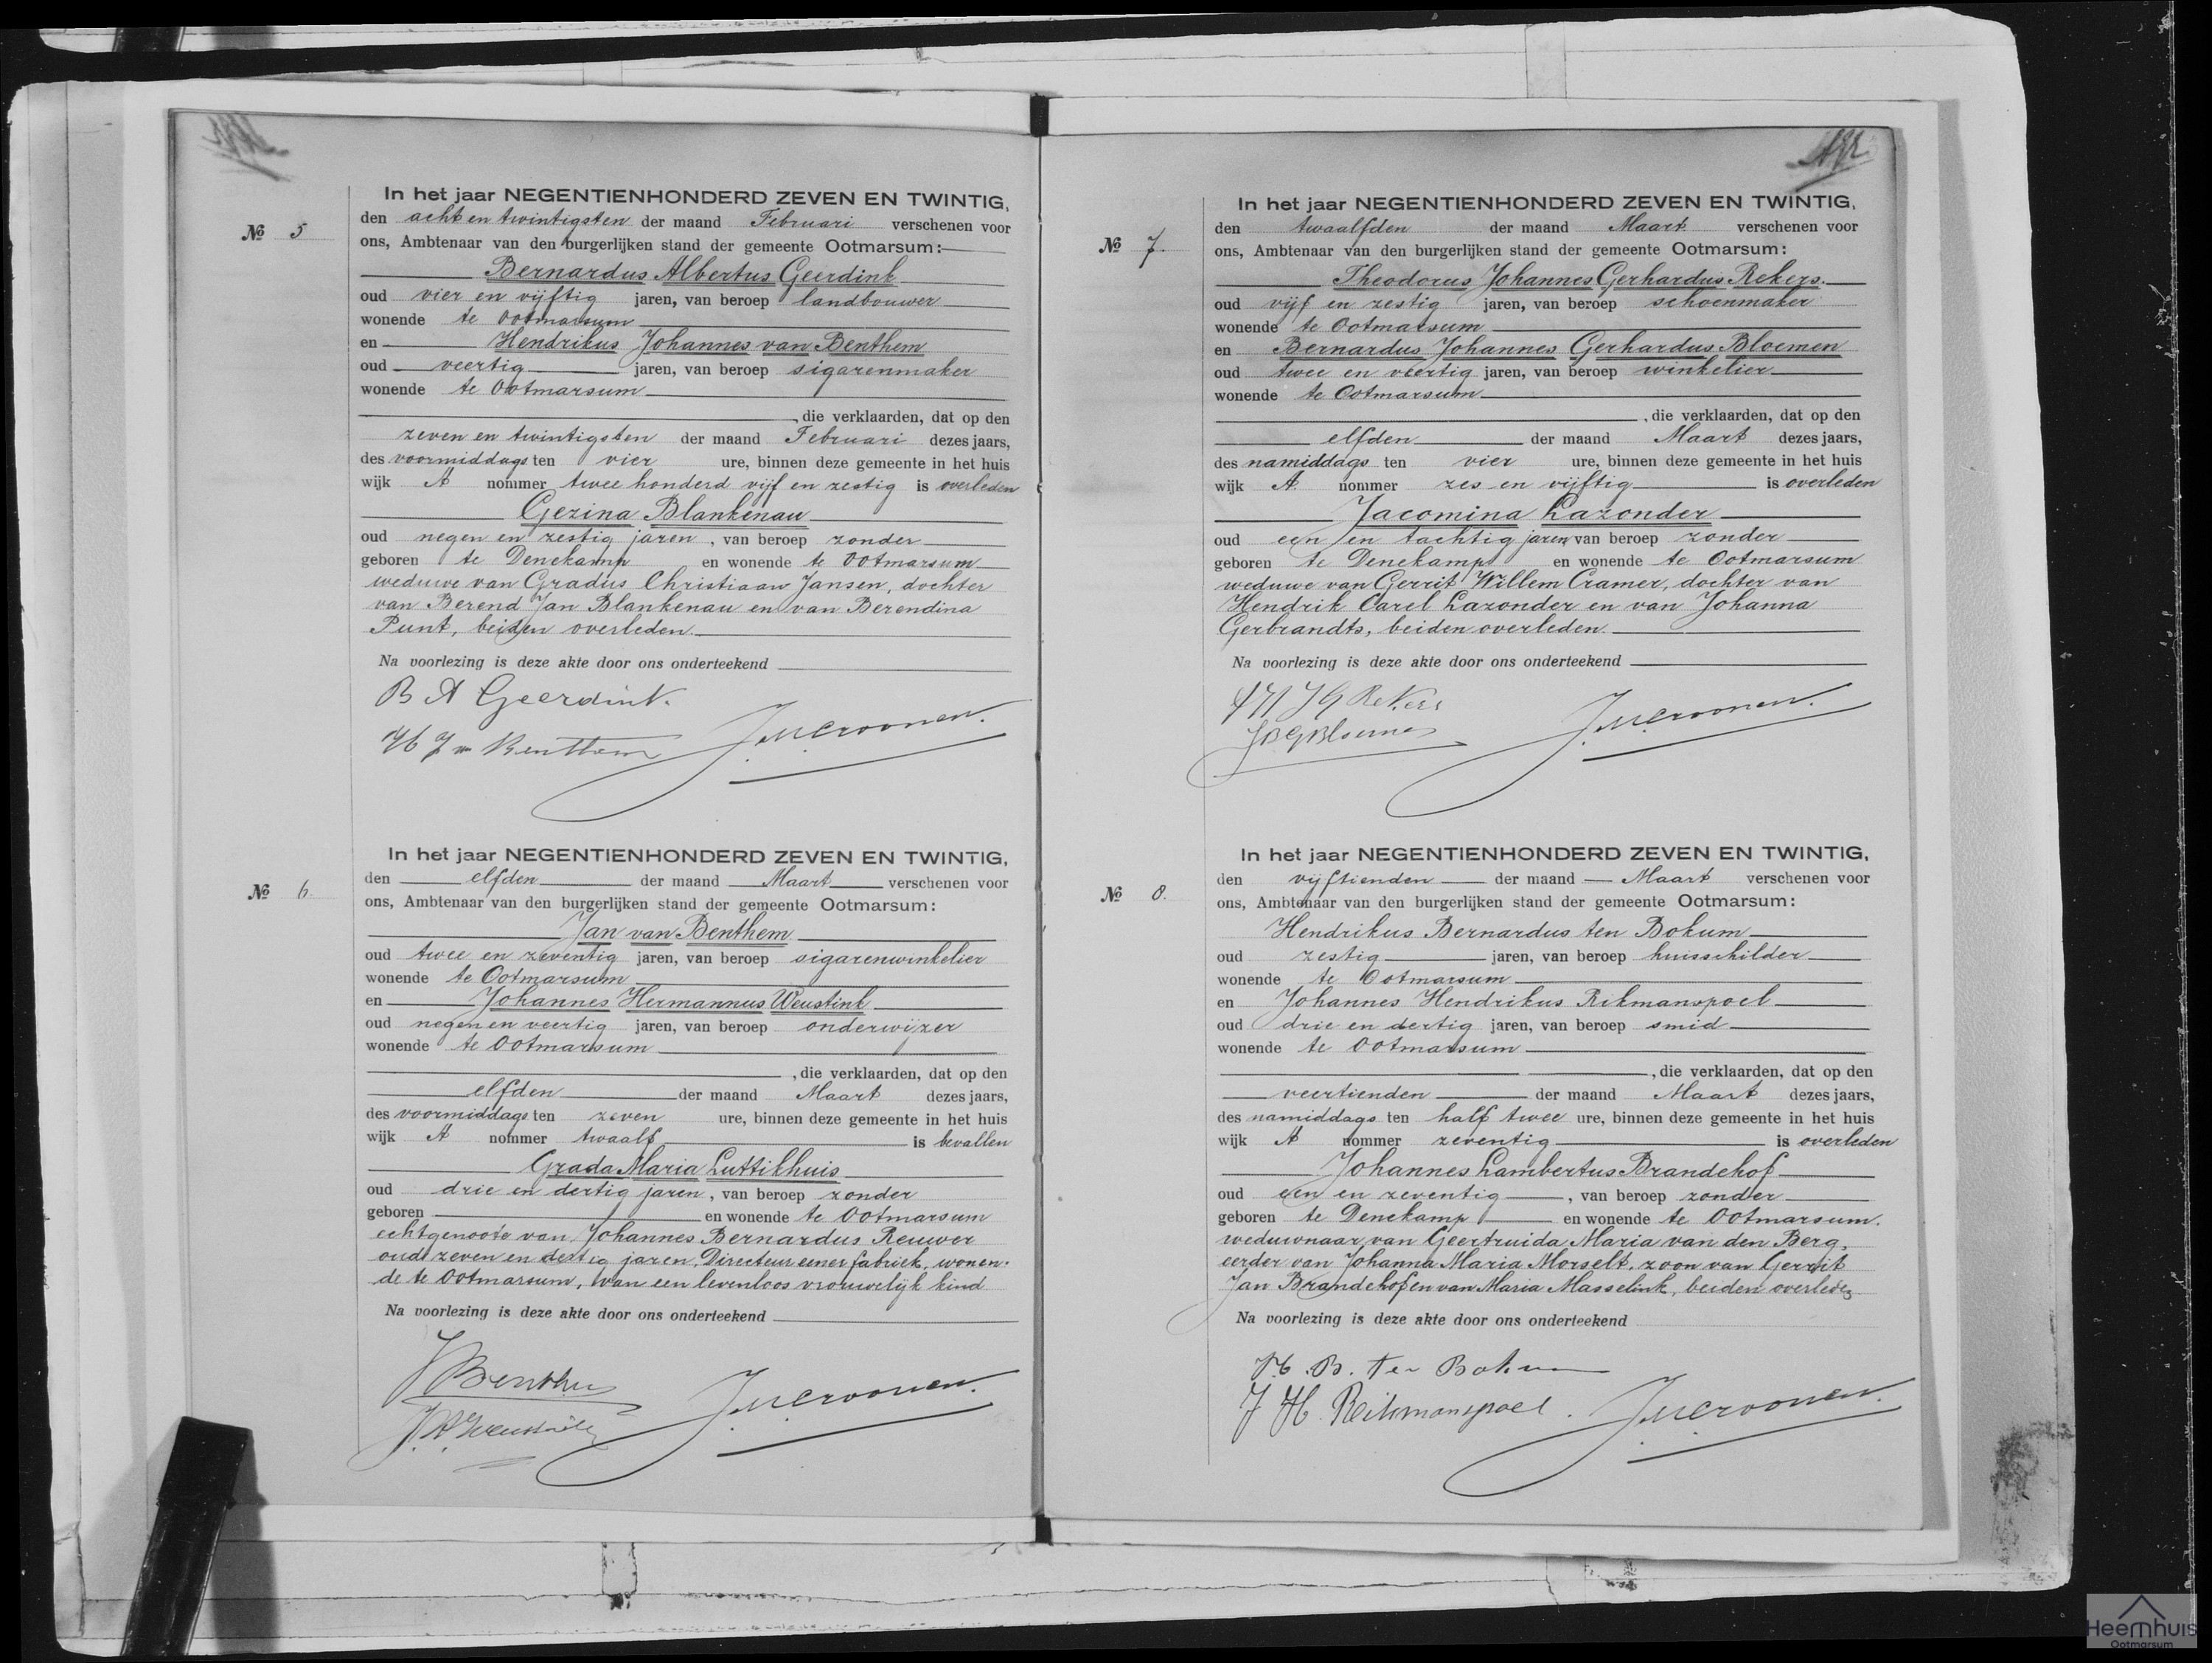 In het jaar NEGENTIENHONDERD ZEVEN EN TWINTIG,
№ 5
den acht en twintigsten der maand Februari verschenen voor
ons, Ambtenaar van den burgerlijken stand der gemeente Ootmarsum:
Bernardus Albertus Geerdink
oud vier en vijftig jaren, van beroep landbouwer
wonende te Ootmarsum
en Hendrikus Johannes van Benthem
oud veertig jaren, van beroep sigarenmaker
wonende te Ootmarsum
, die verklaarden, dat op den
zeven en twintigsten der maand Februari dezes jaars,
des voormiddags ten vier ure, binnen deze gemeente in het huis
wijk A nommer twee honderd vijf en zestig is overleden
Gezina Blankenau
oud negen en zestig jaren, van beroep zonder
geboren te Denekamp en wonende te Ootmarsum
weduwe van Gradus Christiaan Jansen, dochter
van Berend Jan Blankenau en van Berendina
Punt, beiden overleden
Na voorlezing is deze akte door ons onderteekend
B A Geerdink.
H J v Benthem
In het jaar NEGENTIENHONDERD ZEVEN EN TWINTIG,
№ 6.
den elfden der maand Maart verschenen voor
ons, Ambtenaar van den burgerlijken stand der gemeente Ootmarsum:
Jan van Benthem
oud twee en zeventig jaren, van beroep sigarenwinkelier
wonende te Ootmarsum
en Johannes Hermannus Weustink
oud negen en veertig jaren, van beroep onderwijzer
wonende te Ootmarsum
, die verklaarden, dat op den
elfden der maand Maart dezes jaars,
des voormiddags ten zeven ure, binnen deze gemeente in het huis
wijk A nommer twaalf is bevallen
Grada Maria Luttikhuis
oud drie en dertig jaren, van beroep zonder
geboren en wonende te Ootmarsum
echtgenoote van Johannes Bernardus Reuwer
oud zeven en dertig jaren, Directeur eener fabriek, wonen-
de te Ootmarsum, van een levenloos vrouwelijk kind
Na voorlezing is deze akte door ons onderteekend
In het jaar NEGENTIENHONDERD ZEVEN EN TWINTIG,
№ 7.
den twaalfden der maand Maart verschenen voor
ons, Ambtenaar van den burgerlijken stand der gemeente Ootmarsum:
Theodorus Johannes Gerhardus Rekers.
oud vijf en zestig jaren, van beroep schoenmaker
wonende te Ootmarsum
en Bernardus Johannes Gerhardus Bloemen
oud twee en veertig jaren, van beroep winkelier
wonende te Ootmarsum
, die verklaarden, dat op den
elfden der maand Maart dezes jaars,
des namiddags ten vier ure, binnen deze gemeente in het huis
wijk A nommer zes en vijftig is overleden
Jacomina Lazonder
oud een en tachtig jaren van beroep zonder
geboren te Denekamp en wonende te Ootmarsum
weduwe van Gerrit Willem Cramer, dochter van
Hendrik Carel Lazonder en van Johanna
Gerbrandts, beiden overleden
Na voorlezing is deze akte door ons onderteekend
In het jaar NEGENTIENHONDERD ZEVEN EN TWINTIG,
№ 8.
den vijftienden der maand Maart verschenen voor
ons, Ambtenaar van den burgerlijken stand der gemeente Ootmarsum:
Hendrikus Bernardus ten Bokum
oud zestig jaren, van beroep huisschilder
wonende te Ootmarsum
en Johannes Hendrikus Rikmanspoel
oud drie en dertig jaren, van beroep smid
wonende te Ootmarsum
, die verklaarden, dat op den
veertienden der maand Maart dezes jaars,
des namiddags ten half twee ure, binnen deze gemeente in het huis
wijk A nommer zeventig is overleden
Johannes Lambertus Brandehof
oud een en zeventig, van beroep zonder
geboren te Denekamp en wonende te Ootmarsum.
weduwnaar van Geertruida Maria van den Berg,
eerder van Johanna Maria Morselt, zoon van Gerrit
Jan Brandehof en van Maria Masselink, beiden overleden
Na voorlezing is deze akte door ons onderteekend
H. B. ten Bokum
J H. Rikmanspoel.
Heemhuis
Ootmarsum